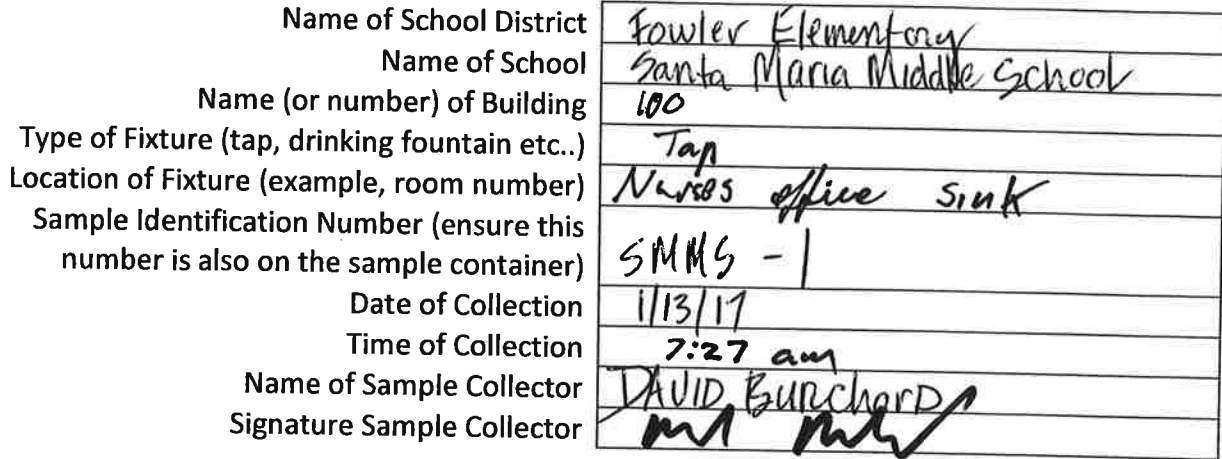 Name of School District Fowler Elementary
Name of School Santa Maria Middle School
Name (or number) of Building 100
Type of Fixture (tap, drinking fountain etc..) Tap
Location of Fixture (example, room number) Nurses office sink
Sample Identification Number (ensure this
number is also on the sample container) SMMS - 1
Date of Collection 1/13/17
Time of Collection 7:27 am
Name of Sample Collector DAVID BurcharD
Signature Sample Collector